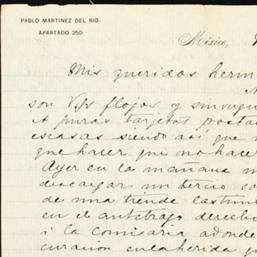 PABLO MARTINEZ DEL RIO.
APARTADO 250.
Mexico,
Mis queridos herm
son Vds flojos y sinvergu
A puras tarjetas posta
escasas siendo asi que n
que hacer que no hace
Ayer en la mañana m
descargar un tercio so
de una tienda
en el antebrazo derecho
i la comisaria adonde
curacion en la herida y